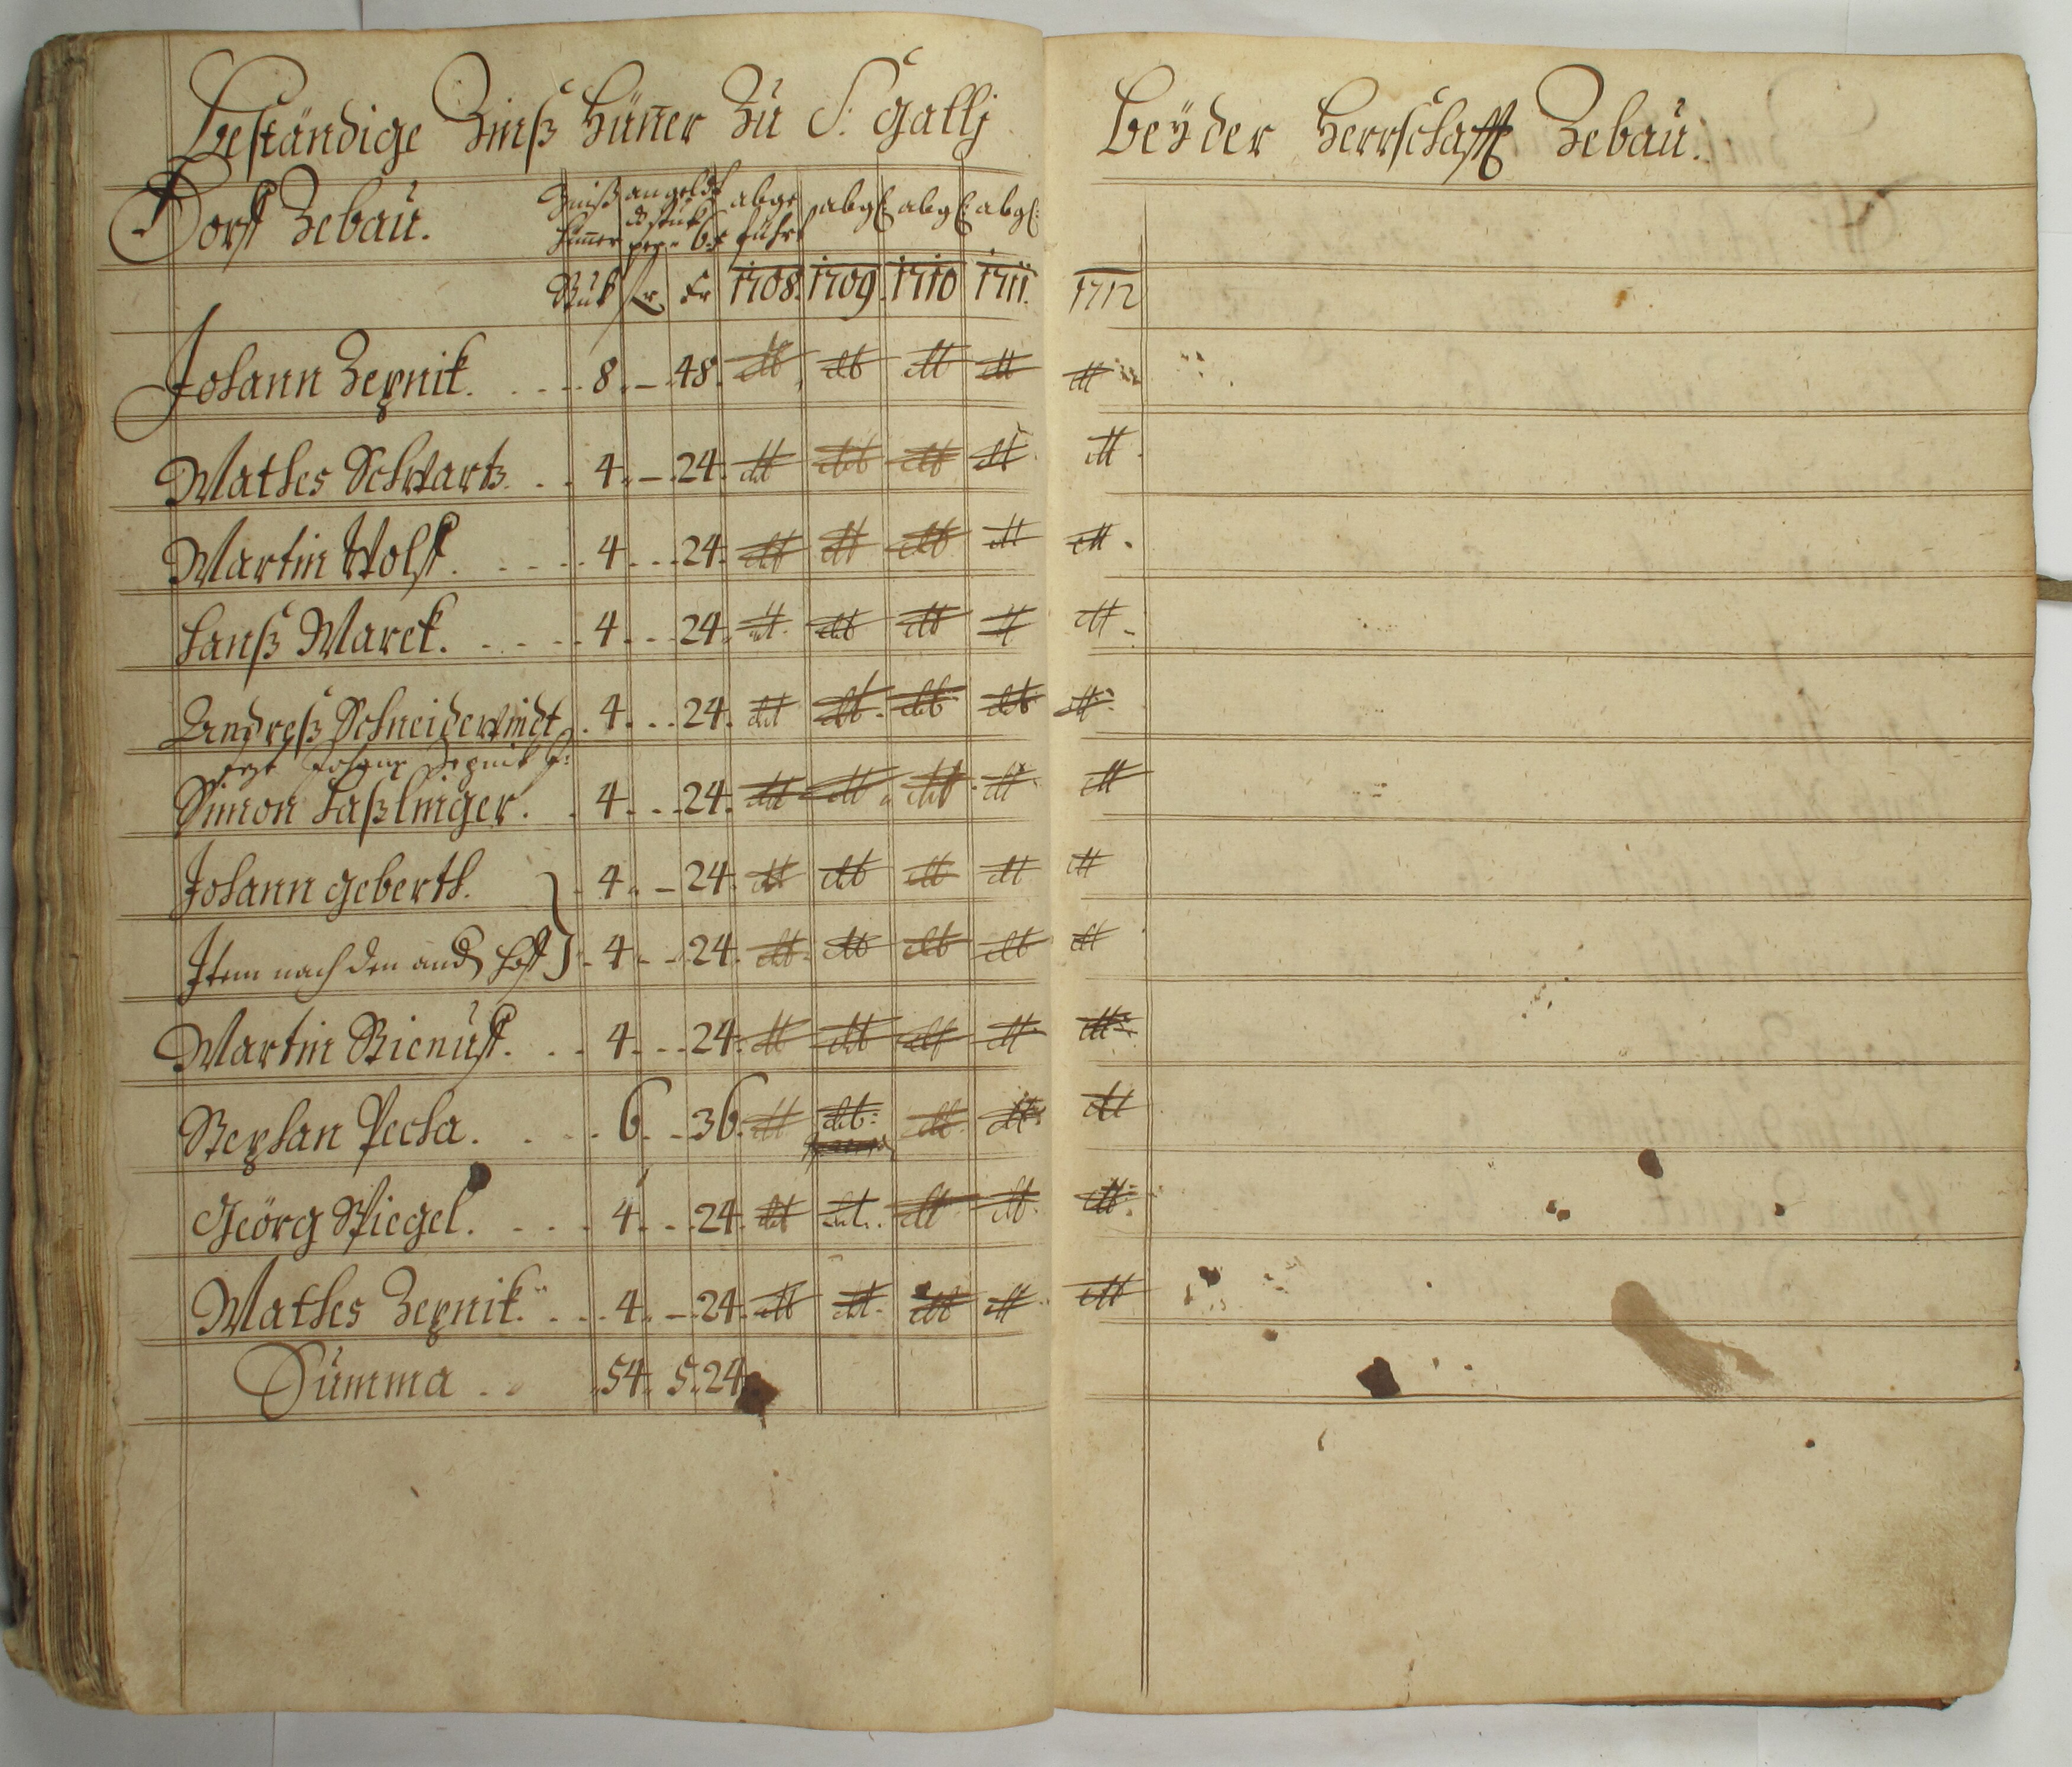 Beständige Zinß Hüner Zu S: Gallj
Beÿ der Herrschafft Zebau.
Dorff Zebau.
Zinß Hüner
angeld d. stuk per 6 x
abge führt
abgf: abgf: abgf:
Stuk fr xr 1708. 1709. 1710 1711. 1712
Johann Zepnik. 8. – 48. dt dt dt dt dt
Mathes Schwartz. 4. – 24. dt dt dt dt dt
Martin Wolff. 4. 24. dt dt dt dt dt
Hanß Marek. 4. 24. dt dt dt dt dt
Andreß Schneiderwindt. 4. 24. dt dt dt dt dt
jezt Johann Zepnik
Simon Haßlinger. 4. 24. dt dt dt dt dt
Johann Geberth. 4. – 24. dt dt dt dt dt
Item nach den and Hoff 4. 24. dt dt dt dt dt
Martin Bienüff. 4. 24. dt dt dt dt dt
Stephan Pecha. 6. 36. dt dt: dt dt dt
Geörg Spiegel. 4. 24. dt dt. dt dt dt
Mathes Zepnik. 4. – 24. dt dt dt dt dt
Summa 54. 5. 24.